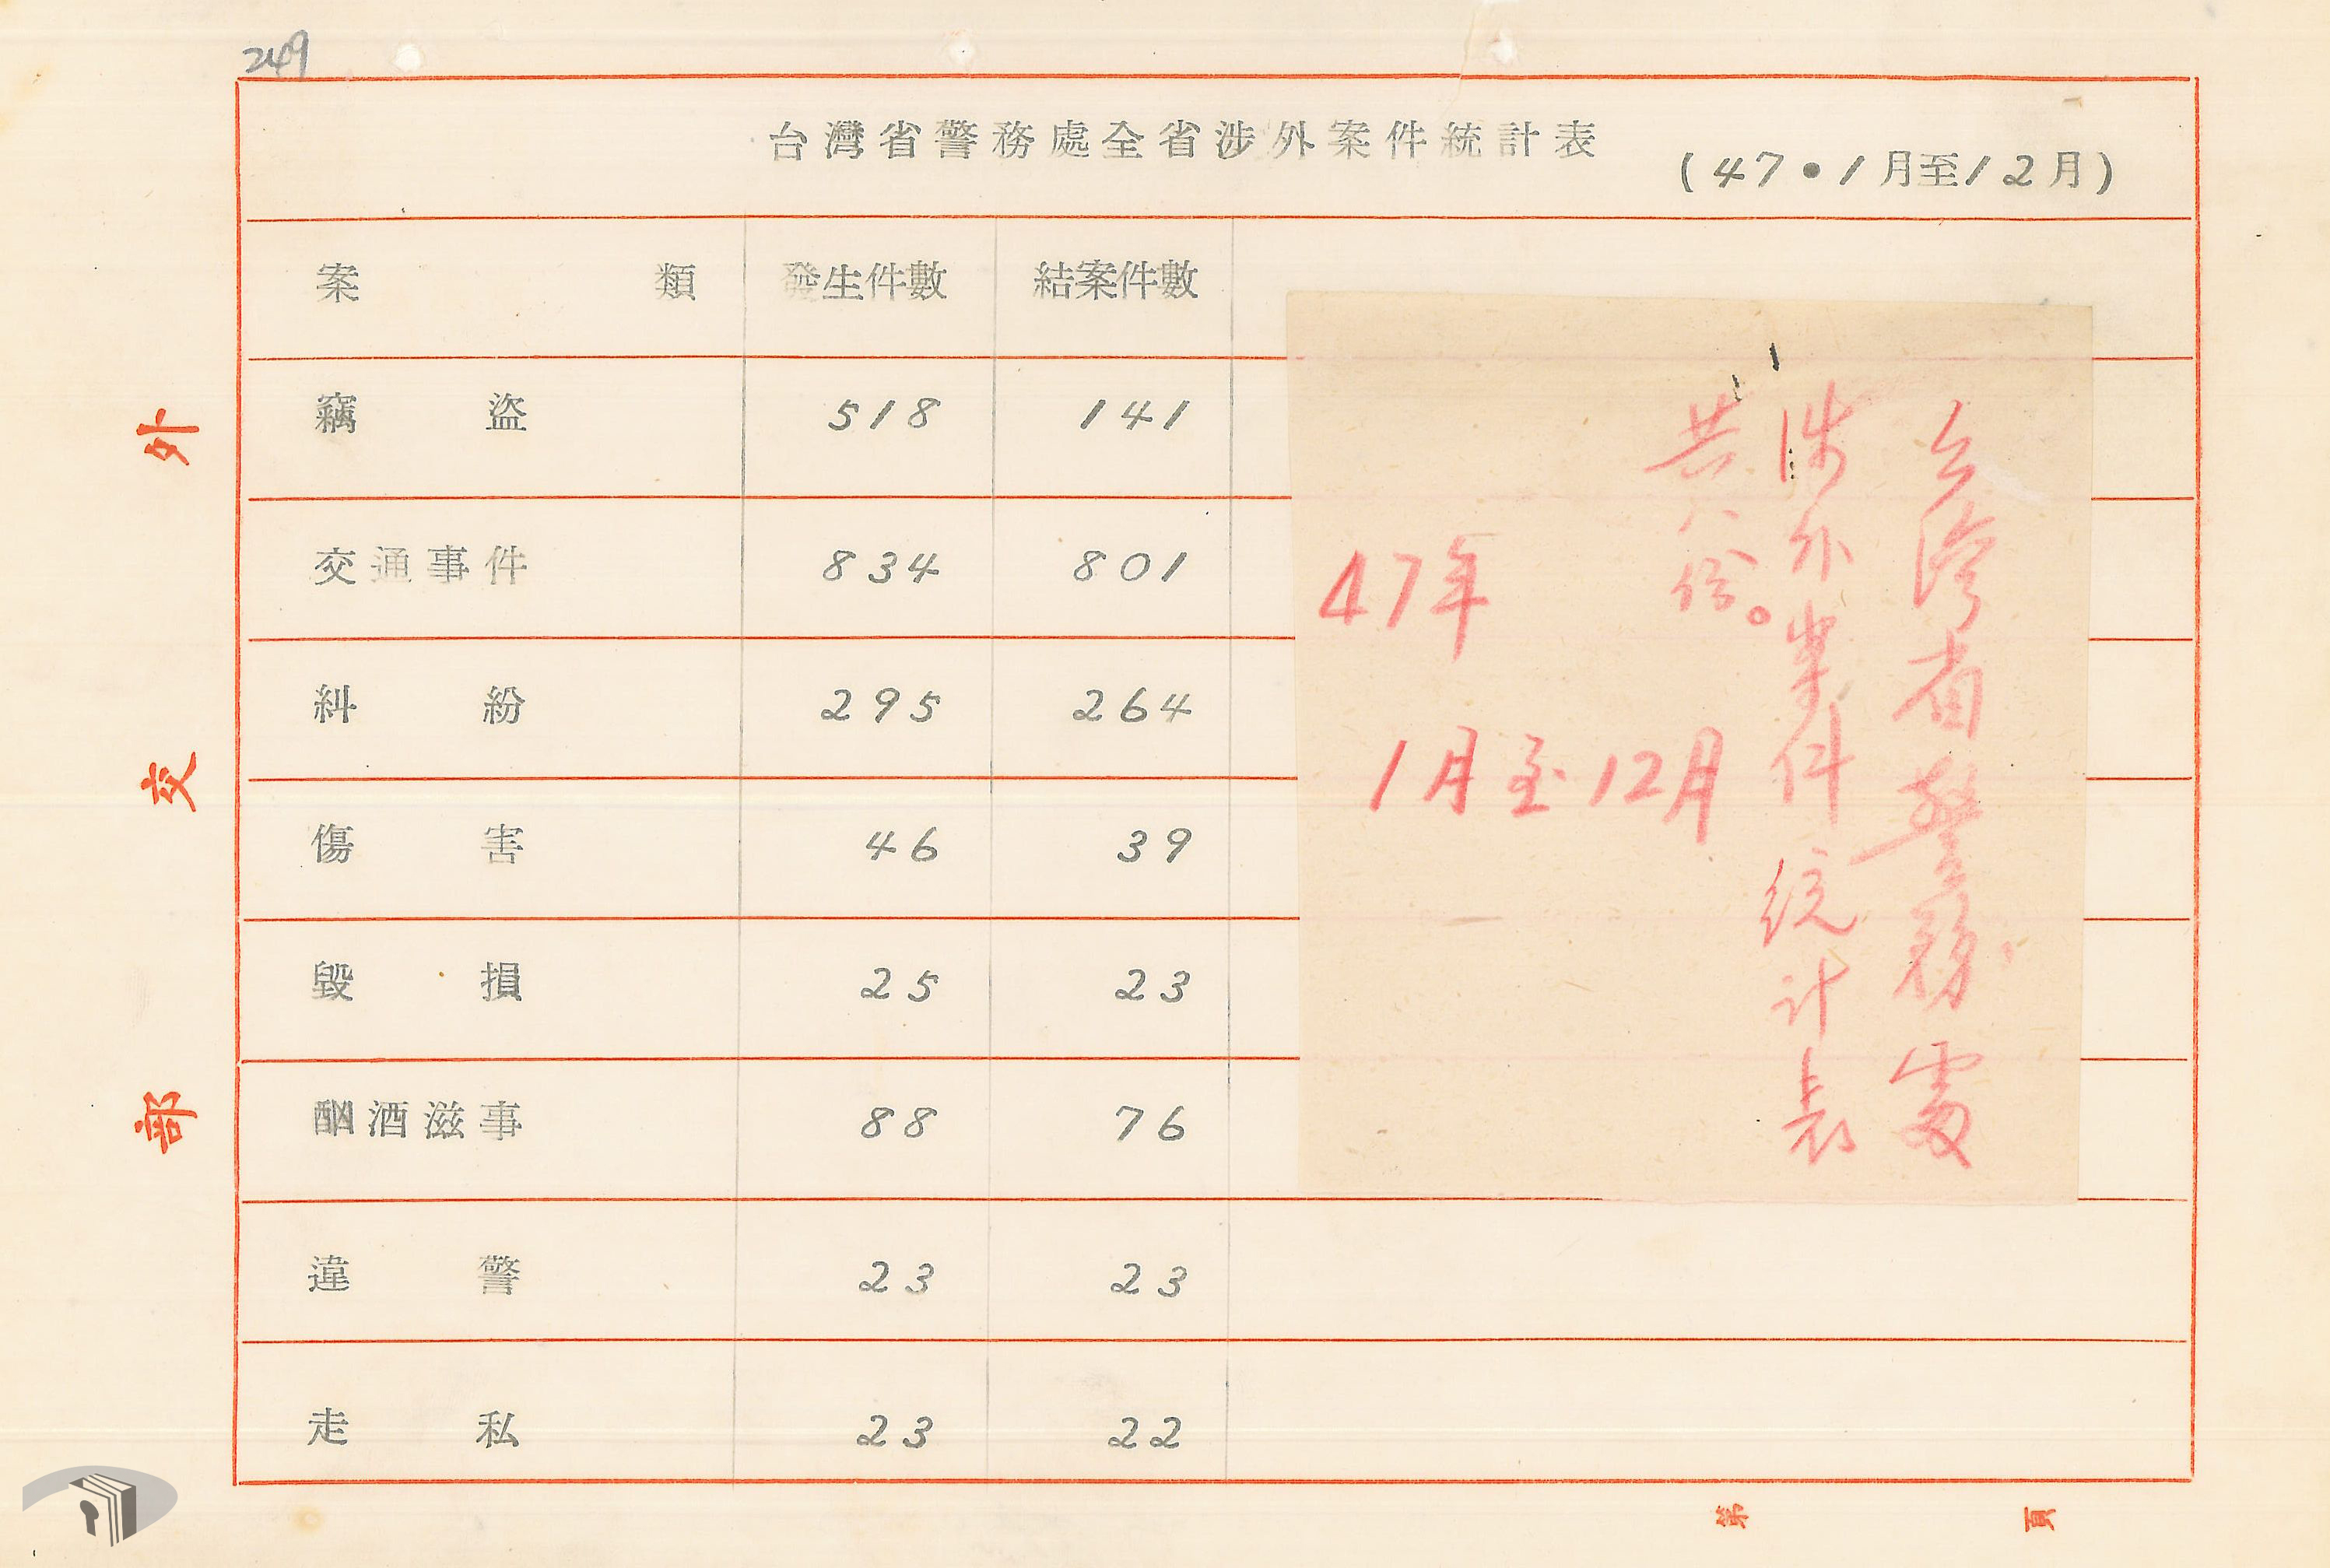 249
台灣省警務處全省涉外案件統計表
(47•1月至12月)
案類 發生件數 結案件數
竊盜 518 141
交通事件 834 801
糾紛 295 264
傷害 46 39
毀損 25 23
酗酒滋事 88 76
違警 23 23
走私 23 22
台灣省警務處
涉外案件統計表
共八份。
47年
1月至12月
外交部
第 頁